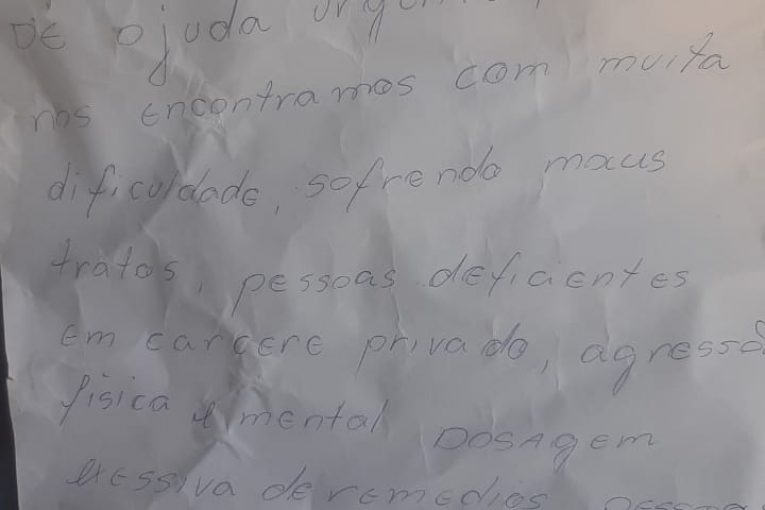 DE ajuda
nos encontramos com muita
dificuldade, sofrendo maus
tratos, pessoas deficientes
em carcere privado, agressão
física e mental DOSAgem
exessiva de remedios